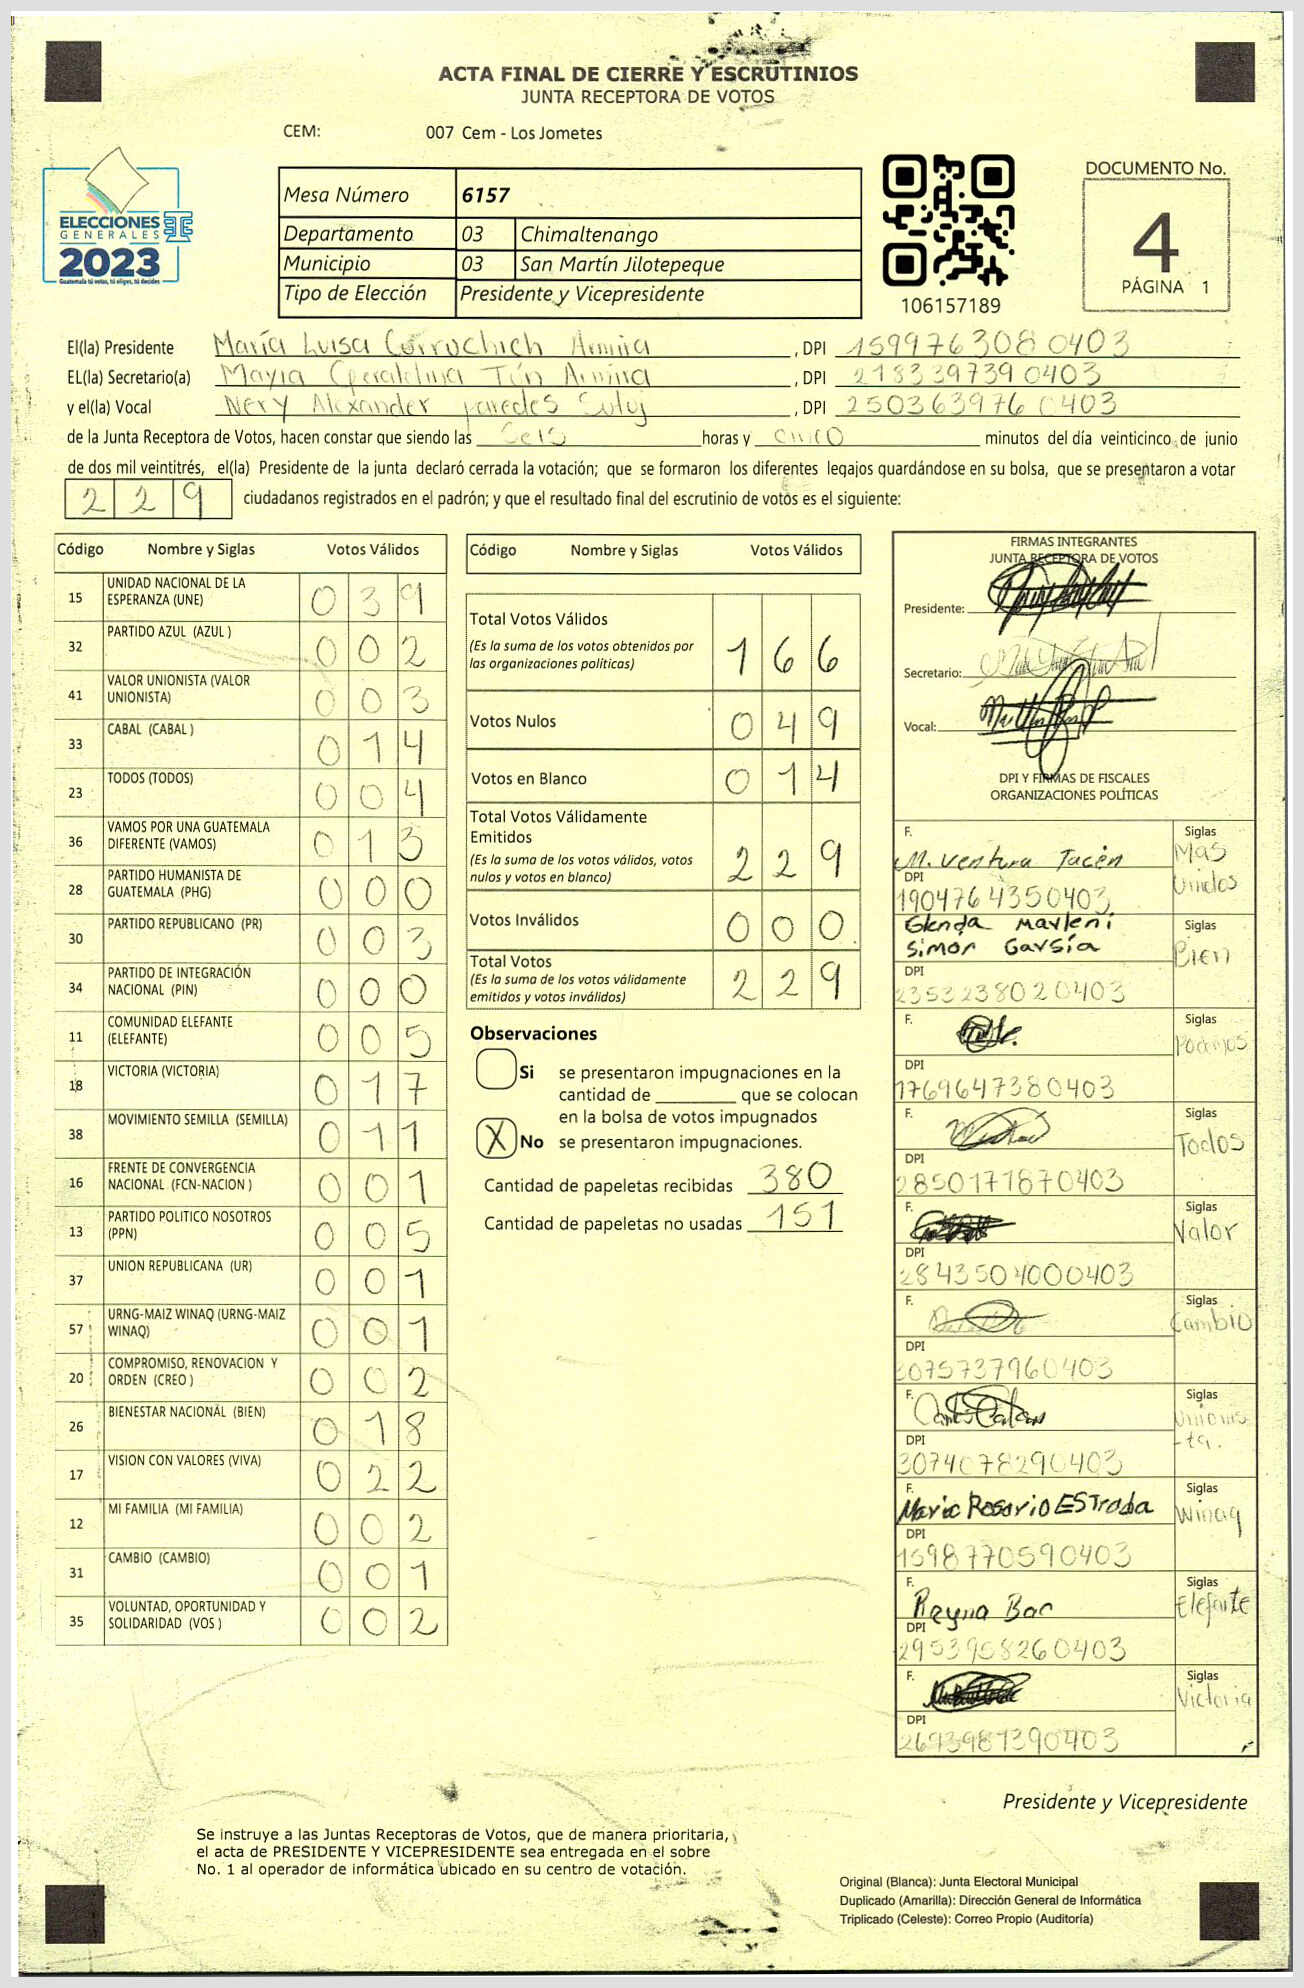 ACTA FINAL DE CIERRE Y ESCRUTINIOS
JUNTA RECEPTORA DE VOTOS
CEM: 007 Cem - Los Jometes
ELECCIONES
GENERALES
2023
Guatemala tú votas, tú eliges, tú decides
TSE
Mesa Número 6157
Departamento 03 Chimaltenango
Municipio 03 San Martín Jilotepeque
Tipo de Elección Presidente y Vicepresidente
106157189
DOCUMENTO No.
4
PÁGINA 1
El(la) Presidente María Luisa Corruchich Armira , DPI 1599763080403
EL(la) Secretario(a) Mayra Tún Armira , DPI 2183397390403
y el(la) Vocal Nery Alexander Paredes , DPI 2503639760403
de la Junta Receptora de Votos, hacen constar que siendo las Seis horas y cinco minutos del día veinticinco de junio
de dos mil veintitrés, el(la) Presidente de la junta declaró cerrada la votación; que se formaron los diferentes legajos guardándose en su bolsa, que se presentaron a votar
229 ciudadanos registrados en el padrón; y que el resultado final del escrutinio de votos es el siguiente:
Código Nombre y Siglas Votos Válidos
15 UNIDAD NACIONAL DE LA ESPERANZA (UNE) 039
32 PARTIDO AZUL (AZUL ) 002
41 VALOR UNIONISTA (VALOR UNIONISTA) 003
33 CABAL (CABAL ) 014
23 TODOS (TODOS) 004
36 VAMOS POR UNA GUATEMALA DIFERENTE (VAMOS) 013
28 PARTIDO HUMANISTA DE GUATEMALA (PHG) 000
30 PARTIDO REPUBLICANO (PR) 003
34 PARTIDO DE INTEGRACIÓN NACIONAL (PIN) 000
11 COMUNIDAD ELEFANTE (ELEFANTE) 005
18 VICTORIA (VICTORIA) 017
38 MOVIMIENTO SEMILLA (SEMILLA) 011
16 FRENTE DE CONVERGENCIA NACIONAL (FCN-NACION ) 001
13 PARTIDO POLITICO NOSOTROS (PPN) 005
37 UNION REPUBLICANA (UR) 001
57 URNG-MAIZ WINAQ (URNG-MAIZ WINAQ) 001
20 COMPROMISO, RENOVACION Y ORDEN (CREO ) 002
26 BIENESTAR NACIONAL (BIEN) 018
17 VISION CON VALORES (VIVA) 022
12 MI FAMILIA (MI FAMILIA) 002
31 CAMBIO (CAMBIO) 001
35 VOLUNTAD, OPORTUNIDAD Y SOLIDARIDAD (VOS ) 002
Código Nombre y Siglas Votos Válidos
Total Votos Válidos
(Es la suma de los votos obtenidos por las organizaciones políticas) 166
Votos Nulos 049
Votos en Blanco 014
Total Votos Válidamente Emitidos
(Es la suma de los votos válidos, votos nulos y votos en blanco) 229
Votos Inválidos 000
Total Votos
(Es la suma de los votos válidamente emitidos y votos inválidos) 229
Observaciones
Si se presentaron impugnaciones en la
cantidad de ________ que se colocan
en la bolsa de votos impugnados
X No se presentaron impugnaciones.
Cantidad de papeletas recibidas 380
Cantidad de papeletas no usadas 151
FIRMAS INTEGRANTES
JUNTA RECEPTORA DE VOTOS
Presidente:
Secretario:
Vocal:
DPI Y FIRMAS DE FISCALES
ORGANIZACIONES POLÍTICAS
F. M. Ventura Tacén Siglas Mas Unidos
DPI 1904764350403
Glenda Marleni Simon Garsía Siglas Bien
DPI 2353238020403
F. Siglas Podemos
DPI 1769647380403
F. Siglas Todos
DPI 2850171870403
F. Siglas Valor
DPI 2843504000403
F. Siglas Cambio
DPI 3075737960403
F. Siglas Unionis-ta.
DPI 3074078290403
F. Maria Rosario EStrada Siglas Winaq
DPI 1598770590403
F. Reyna Bar Siglas Elefante
DPI 2953958260403
F. Siglas Victoria
DPI 2693981390403
Presidente y Vicepresidente
Se instruye a las Juntas Receptoras de Votos, que de manera prioritaria,
el acta de PRESIDENTE Y VICEPRESIDENTE sea entregada en el sobre
No. 1 al operador de informática ubicado en su centro de votación.
Original (Blanca): Junta Electoral Municipal
Duplicado (Amarilla): Dirección General de Informática
Triplicado (Celeste): Correo Propio (Auditoría)